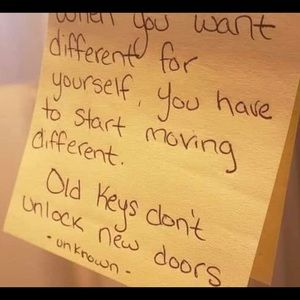 When you want
different for
yourself, you have
to start moving
different.
Old Keys don't
unlock new doors
- unknown -